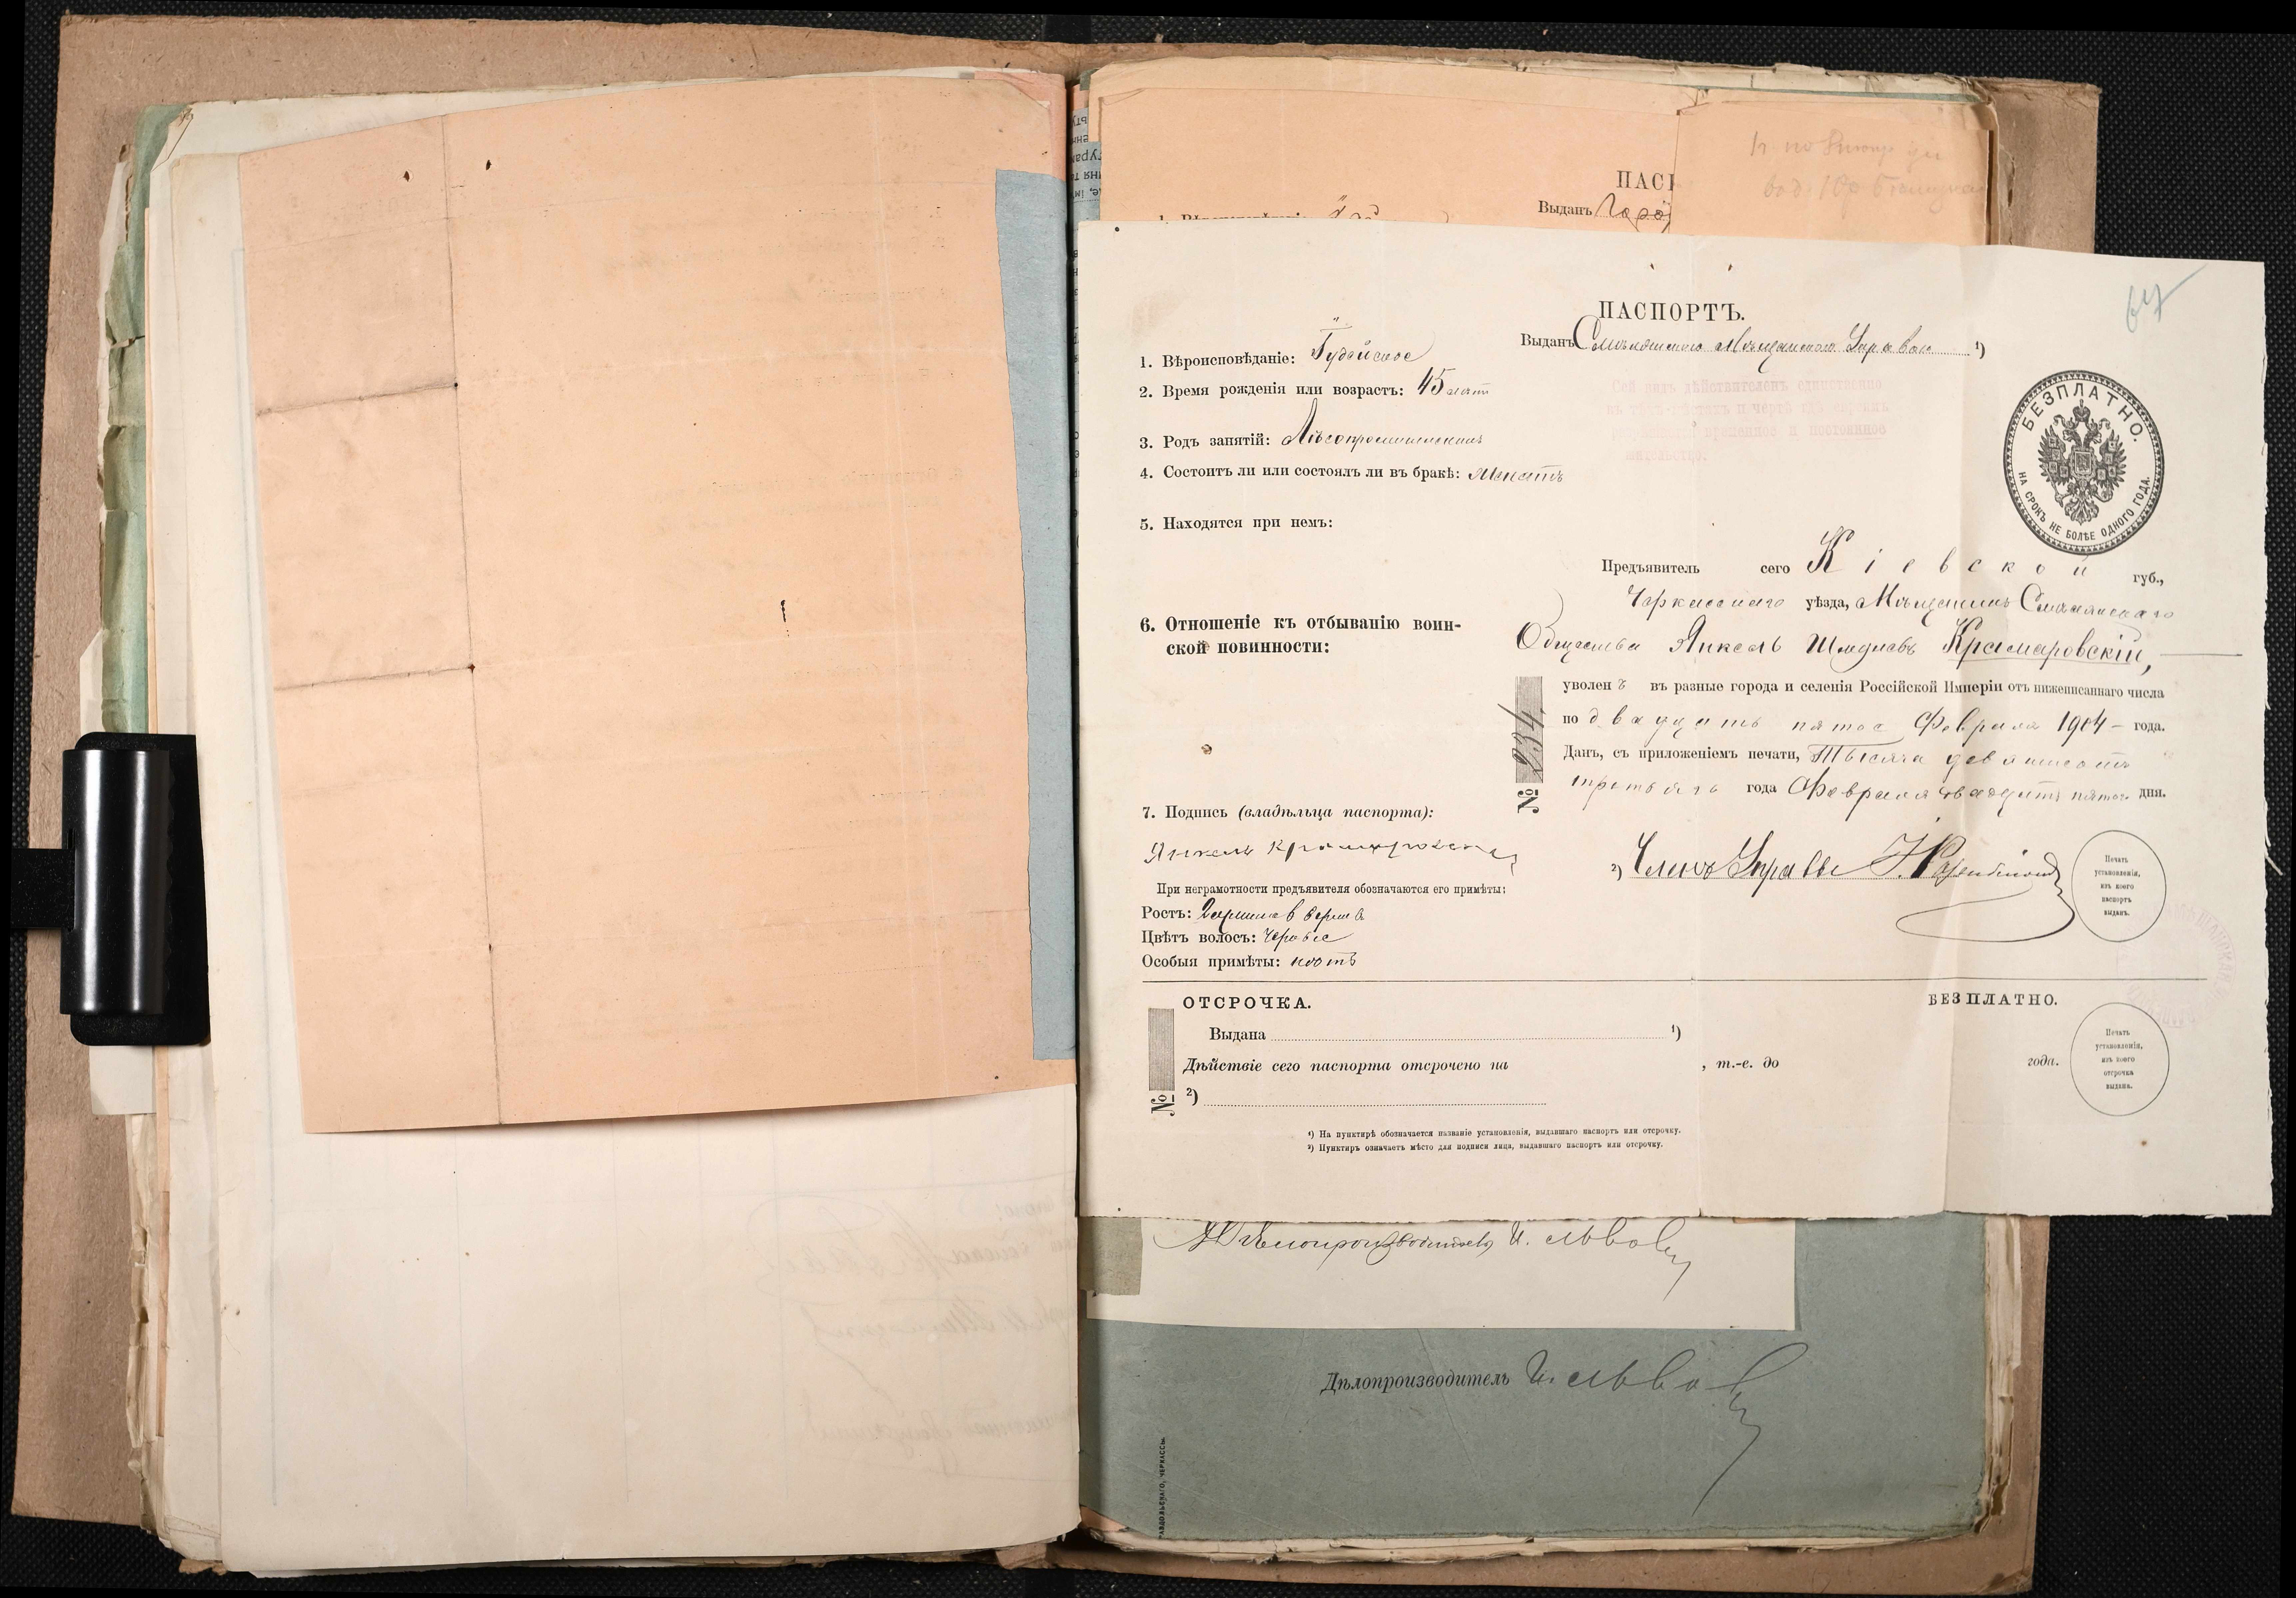 ПАС
Выданъ
ПАСПОРТЪ.
Выданъ Смѣлянскою Мѣщанскою Управою ¹)
1. Вѣроисповѣданіе: Іудейское
2. Время рожденія или возрастъ: 45 лѣтъ
3. Родъ занятій: Лѣсопромышленникъ
4. Состоитъ ли или состоялъ ли въ бракѣ: Женатъ
5. Находятся при немъ:
6. Отношеніе къ отбыванію воин-
ской повинности:
7. Подпись (владѣльца паспорта):
Янкель Крамаровскій
При неграмотности предъявителя обозначаются его примѣты:
Ростъ: 2 аршина 6 верш
Цвѣтъ волосъ: черные
Особыя примѣты: нѣтъ
Сей видъ дѣйствителенъ единственно
въ тѣхъ мѣстахъ и чертѣ гдѣ евреямъ
временное и постоянное
жительство.
БЕЗПЛАТНО.
НА СРОКЪ НЕ БОЛѢЕ ОДНОГО ГОДА.
Предъявитель сего Кіевской губ.,
Черкасскаго уѣзда, Мѣщанинъ Смѣлянскаго
Общества Янкель Крамаровскій,
уволенъ въ разные города и селенія Россійской Имперіи отъ нижеписаннаго числа
по двадцать пятое Февраля 1904 – года.
Данъ, съ приложеніемъ печати, Тысяча девятьсотъ
третьяго года Февраля двадцать пятого дня.
№ 234
²) Членъ Управы
Печать
установленія,
изъ коего
паспортъ
выданъ.
ОТСРОЧКА.
БЕЗПЛАТНО.
Выдана ¹)
Дѣйствіе сего паспорта отсрочено на , т.-е. до года.
№
²)
Печать
установленія,
изъ коего
отсрочка
выдана.
¹) На пунктирѣ обозначается названіе установленія, выдавшаго паспортъ или отсрочку.
²) Пунктиръ означаетъ мѣсто для подписи лица, выдавшаго паспортъ или отсрочку.
Дѣлопроизводитель И. Львовъ
Дѣлопроизводитель И. Львовъ